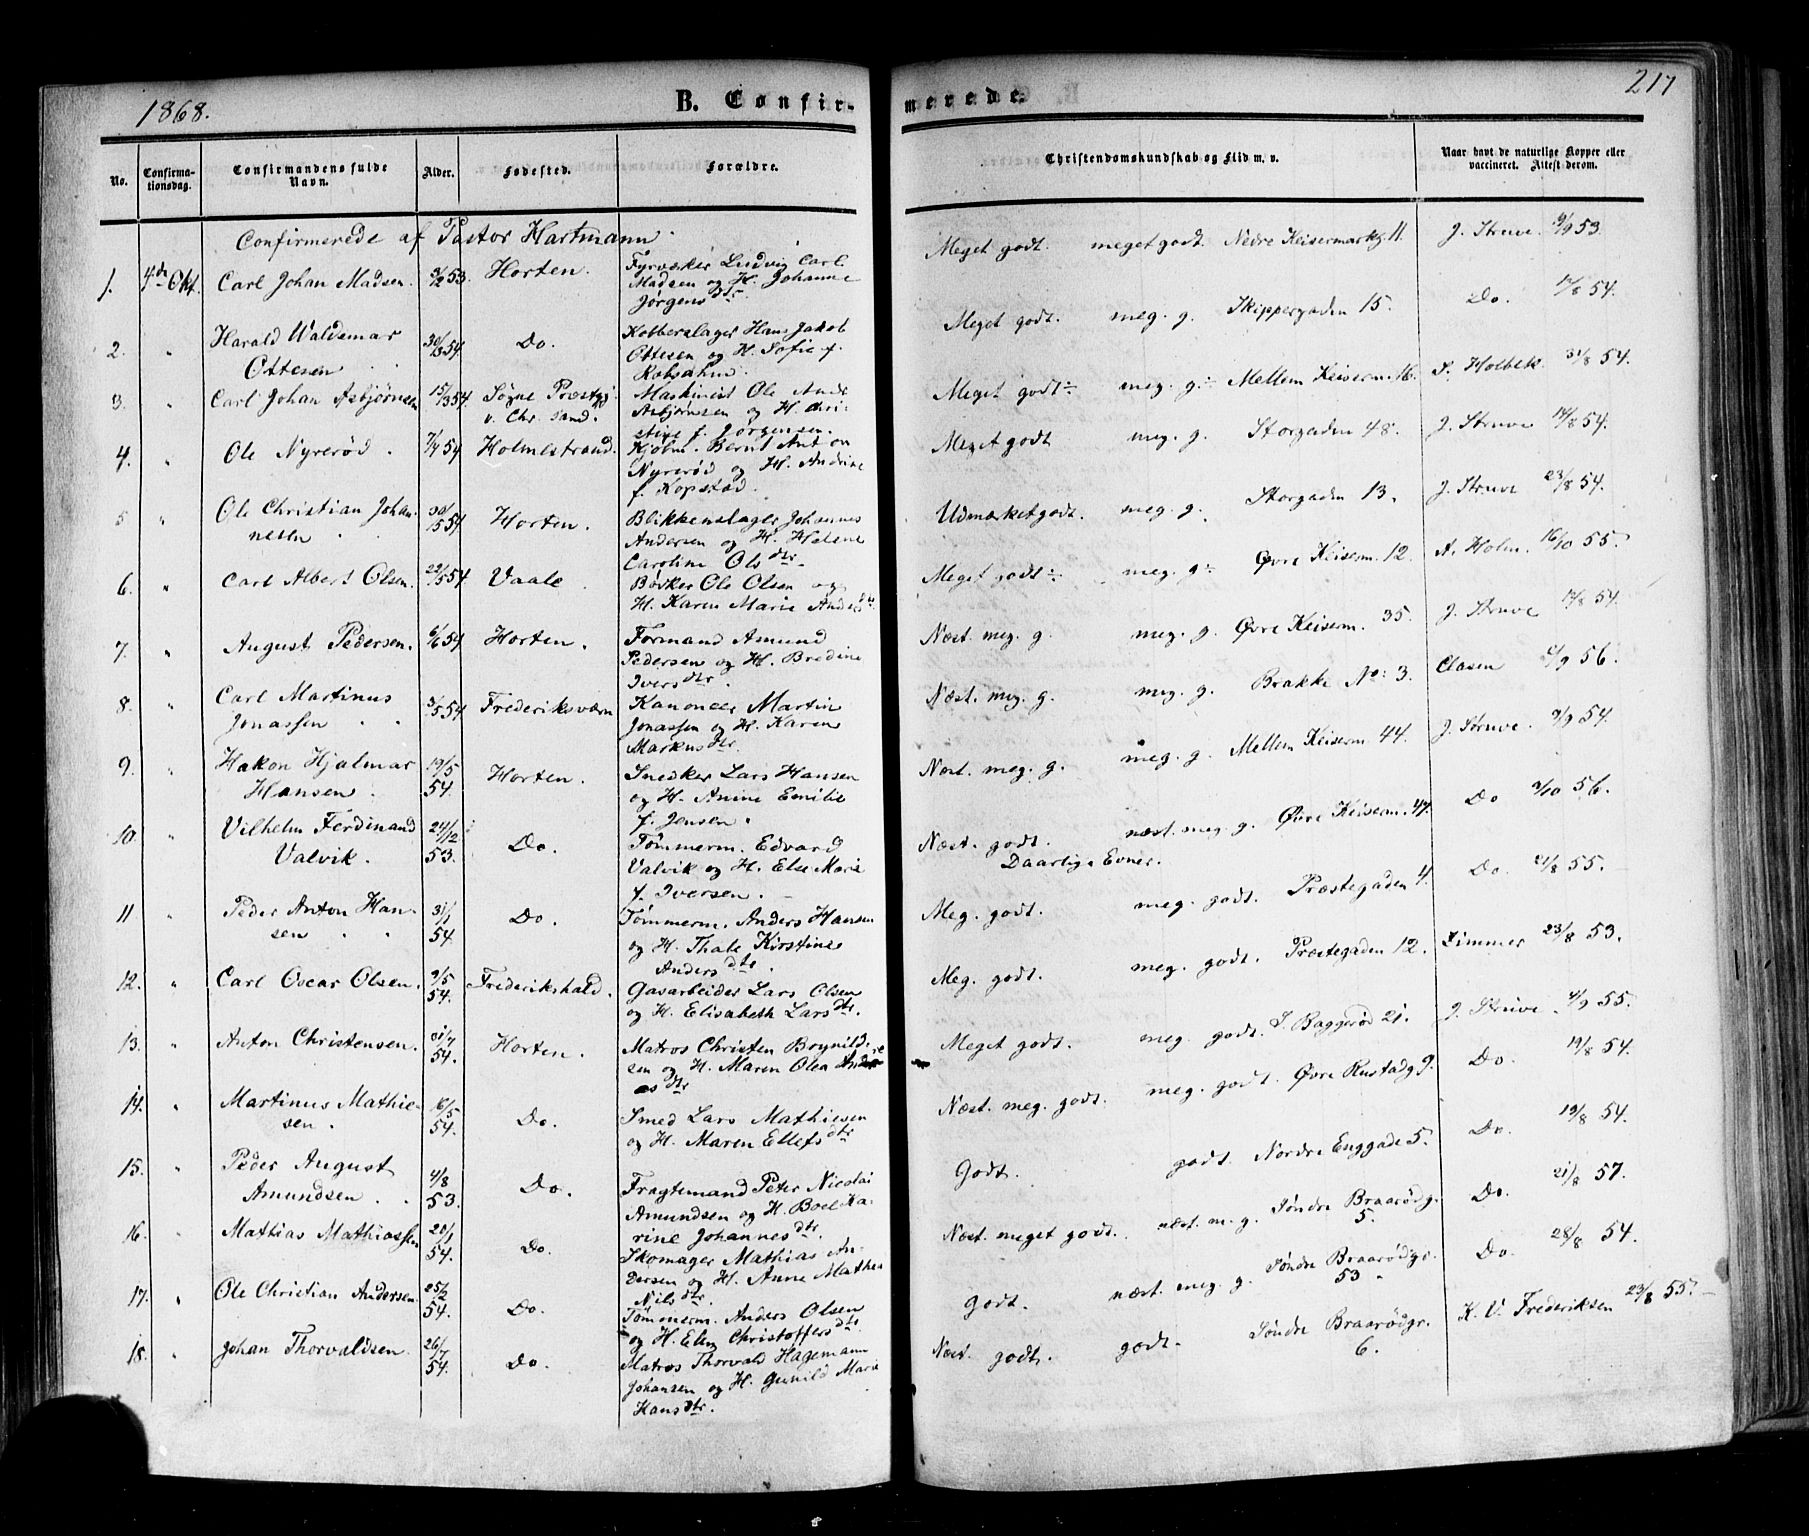 1868.
B. Confir-
merede.
217
No.
Confirma-
tionsdag.
Confirmandens fulde
Navn.
Alder.
Fødested.
Forældre.
Christendomskundskab og Flid m. v.
Naar havt de naturlige Kopper eller
vaccineret. Attest derom.
Confirmerede af Pastor Hartmann.
1. 4de Okt. Carl Johan Madsen. 53. Horten. Fyrvæker Ludvig Carl
Madsen og H. Johanne
Jørgensdtr
Meget godt. meget godt. Nedre Keisermarkg. 11. J. Struve. 9/9 53.
2. " Harald Waldemar 54 Do. Kobberslager Hans Jakob
Ottesen Ottesen og H. Sofie f.
Meget godt. meg. g. Skippergaden 15. Do. 54.
3. " Carl Johan Asbjørnsen 15/3 54. Søgne Præstgj. Maskinist Ole
v. Chr. sand. Asbjørnsen og H. Chri-
stine f. Jørgensen.
Meget godt÷ meg. g÷ Mellem Keiserm. 16. Holbek 31/8 54.
4. " Ole Nyrerød. 54 Holmestrand. Bernt Anton
Nyrerød og H. Andrine
f. Kopstad.
Meget godt meg. g. Storgaden 48. J. Struve 54.
5 " Ole Christian Johan- 54 Horten. Blikkenslager Johannes
nesen Andersen og H. Helene
Caroline Olsdtr.
Udmærket godt. meg. g. Storgaden 13. J. Struve 23/8 54.
6. " Carl Albert Olsen. 22/5 54 Vaale Bødker Ole Olsen og
H. Karen Marie Andersdtr.
Meget godt÷ meg. g÷ Øvre Keiserm. 12. A. Holm. 16/10 55.
7. " August Pedersen. 54 Horten. Formand Amund
Pedersen og H. Bredine
Iversdtr.
Næst. meg. g. meg. g. Øvre Keiserm. 35. J. Struve 54.
8. " Carl Martinus 54 Frederiksværn Kanoneer Martin
Jonassen Jonassen og H. Karen
Markusdtr.
Næst. meg. g. meg. g. Brakke No: 3. Clasen 56.
9. " Hakon Hjalmar 19/5 Horten. Snedker Lars Hansen
Hansen. 54. og H. Anine Emilie
f. Jensen.
Næst. meg. g. meg. g. Mellem Keiserm. 44. J. Struve. 9/9 54.
10. " Vilhelm Ferdinand 24/12 Do. Tømmerm. Edvard
Valvik. 53. Valvik og H. Else Marie
f. Iversen.
Næst. godt. næst. meg. g. Øvre Keiserm. 47. Do 56.
Daarlige Evner.
11 " Peder Anton Han- 31/1 Do. Tømmerm. Anders Hansen
sen 54. og H. Thale Kirstine
Andersdtr.
Meg. godt. meg. godt. Præstegaden 4. Do. 21/8 55.
12. " Carl Oscar Olsen. 9/5 Frederikshald. Gasarbeider Lars Olsen
54. og H. Elisabeth Larsdtr.
Meg. godt. meg. godt. Præstegaden 12. Zimmer 23/8 53.
13. " Anton Christensen. 31/7 Horten. Matros Christen Brynild-
54. sen og H. Maren Olea Andre-
asdtr
Meget godt. meg. godt. S. Baggerød 21. J. Struve. 4/9 55.
14. " Martinus Mathie- 16/5 Do. Smed Lars Mathiesen
sen. 54. og H. Maren Ellefsdtr
Næst. meg. godt. meg. godt. Øvre Rustadg 9. Do. 19/8 54.
15. " Peder August 4/8 Do. Fragtemand Peter Nicolai
Amundsen. 53. Amundsen og H. Boel Ka-
rine Johannesdtr.
Godt. godt. Nordre Enggade 5. Do. 19/8 54.
16. " Mathias Mathiassen 28/1 Do. Skomager Mathias An-
54. dersen og H. Anne Mathea
Nilsdtr.
Næst. meget godt. næst. m. g. Søndre Braarødg. Do. 21/8 57.
5.
17. " Ole Christian Andersen. 25/2 Do. Tømmerm. Anders Olsen
54. og H. Elen Christoffersdtr
Godt. næst. meg. g. Søndre Braarødgr. Do. 28/8 54.
53
18. " Johan Thorvaldsen. 26/7 Do. Matros Thorvald Hagemann
54. Johansen og H. Gunild Marie
Hansdtr.
Næst. godt. godt. Søndre Braarødgr. K. V. Frederiksen 23/8 55.
6.